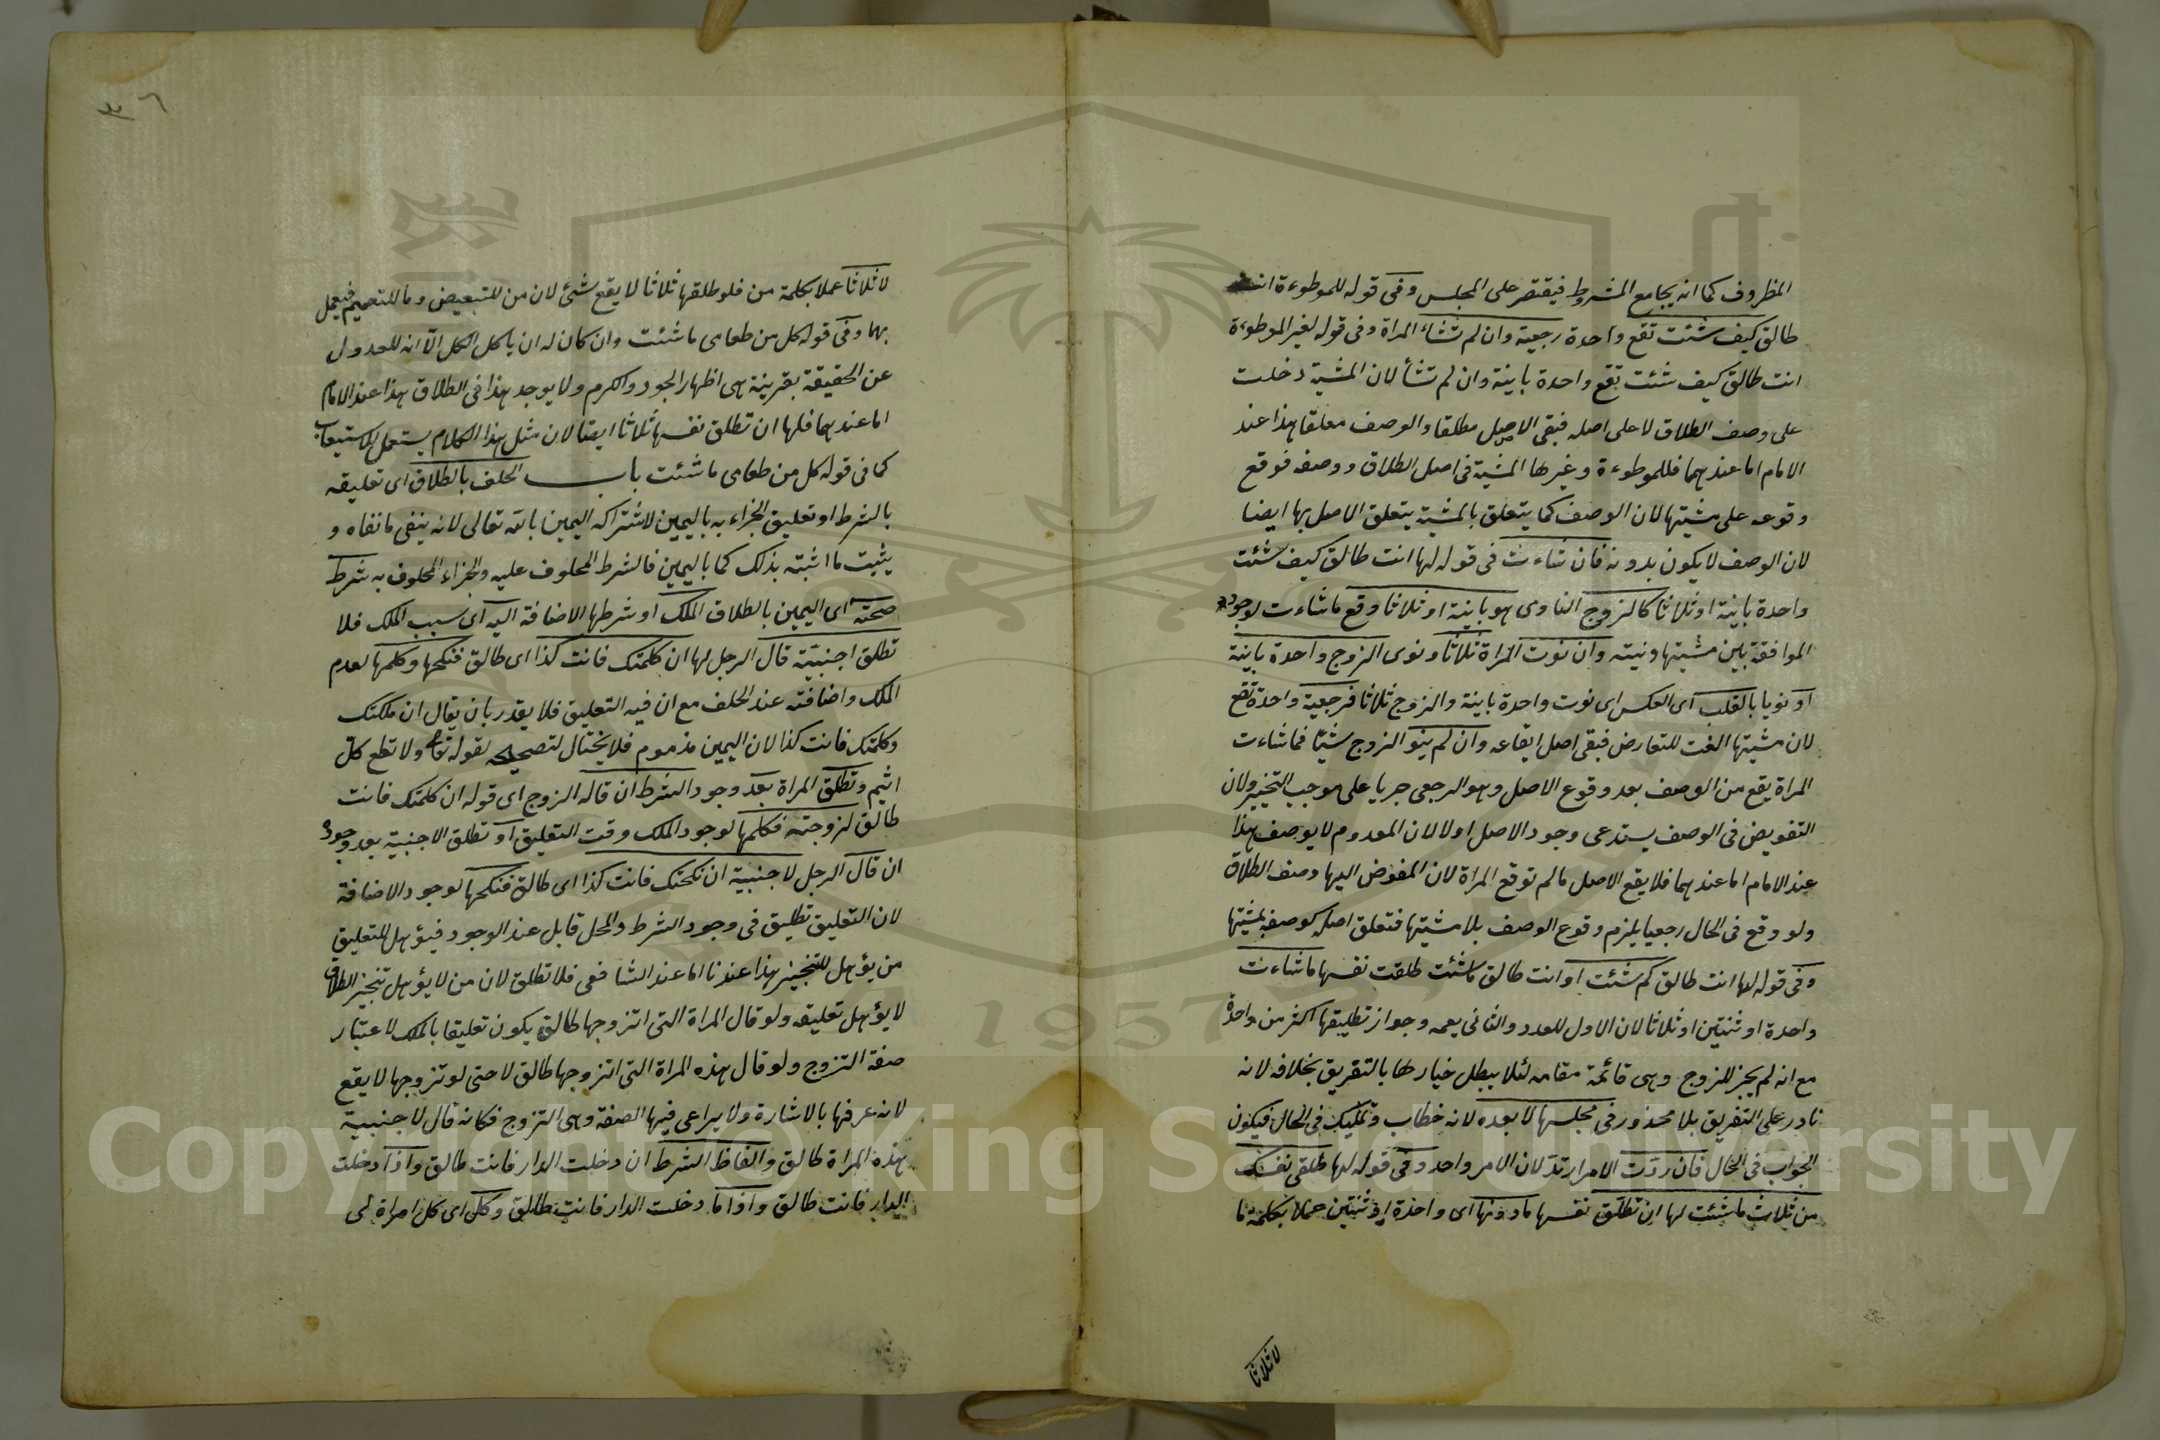 المظروف كما انه يجامع المشروط فيقتصر على المجلس وفى قوله للموطوءة انت
طالق كيف شئت تقع واحدة رجعية وان لم تشاء المراة وفى قوله لغير الموطوءة
انت طالق كيف شئت تقع واحدة باينة وان لم تشأ لان المشية دخلت
على وصف الطلاق لا على اصله فبقى الاصل مطلقا والوصف معلقا هذا عند
الامام اما عندهما فللموطوءة وغيرها المشية فى اصل الطلاق ووصفه فوقع
وقوعه على مشيتها لان الوصف كما يتعلق بالمشية يتعلق الاصل بها ايضا
لان الوصف لا يكون بدونه فان شاءت فى قوله لها انت طالق كيف شئت
واحدة باينة او ثلاثا كالزوج الناوى هو باينة او ثلاثا وقع ما شاءت لوجود
الموافقة بين مشيتها ونيته وان نوت المراة ثلاثا ونوى الزوج واحدة باينة
او نويا بالقلب اى العكس اى نوت واحدة باينة والزوج ثلاثا فرجعية واحدة تقع
لان مشيتها الغت للتعارض فبقى اصل ايقاعه وان لم ينو الزوج شيئا فما شاءت
المراة يقع من الوصف بعد وقوع الاصل وهو الرجعى جريا على موجب التخيير ولان
التفويض فى الوصف يستدعى وجود الاصل اولا لان المعدوم لا يوصف هذا
عند الامام اما عندهما فلا يقع الاصل ما لم توقع المراة لان المفوض اليها وصف الطلاق
ولو وقع فى الحال رجعيا يلزم وقوع الوصف بلا مشيتها فتعلق اصله كوصفه بمشيتها
وفى قوله لها انت طالق كم شئت او انت طالق ما شئت طلقت نفسها ما شاءت
واحدة او ثنتين او ثلاثا لان الاول للعدد والثانى يعمه وجواز تطليقها اكثر من واحدة
مع انه لم يجز للزوج وهى قائمة مقامه لئلا يبطل خيارها بالتفريق بخلافه لانه
نادر على التفريق بلا محذور فى مجلسها لا بعده لانه خطاب وتمليك فى الحال فيكون
الجواب فى الحال فان ردت الامر ارتد لان الامر واحد وفى قوله لها طلقى نفسك
من ثلاث ما شئت لها ان تطلق نفسها ما دونها اى واحدة او ثنتين عملا بكلمة ما
لا ثلاثا
٣٦
لا ثلاثا عملا بكلمة من فلو طلقها ثلاثا لا يقع شئ لان من للتبعيض وما للتعميم فيعمل
بهما وفى قوله كل من طعامى ما شئت وان كان له ان ياكل الكل الا انه للعدول
عن الحقيقة بقرينة هى اظهار الجود والكرم ولا يوجد هذا فى الطلاق هذا عند الامام
اما عندهما فلها ان تطلق نفسها ثلاثا ايضا لان مثل هذا الكلام يستعمل للاستيعاب
كما فى قوله كل من طعامى ما شئت باب الحلف بالطلاق اى تعليقه
بالشرط او تعليق الجزاء به باليمين لاشتراكه اليمين بالله تعالى لانه ينفى ما نفاه و
يثبت ما اثبته بذلك كما باليمين فالشرط المحلوف عليه والجزاء المحلوف به شرط
صحته اى اليمين بالطلاق الملك او شرطها الاضافة اليه اى سبب الملك فلا
تطلق اجنبية قال الرجل لها ان كلمتك فانت كذا اى طالق فنكحها وكلمها لعدم
الملك واضافته عند الحلف مع ان فيه التعليق فلا يقدر بان يقال ان ملكتك
وكلمتك فانت كذا لان اليمين مذموم فلا يحتال لتصحيحه لقوله تعالى ولا تطع كل
اثيم وتطلق المراة بعد وجود الشرط ان قاله الزوج اى قوله ان كلمتك فانت
طالق لزوجته فكلمها لوجود الملك وقت التعليق او تطلق الاجنبية بعد وجوده
ان قال الرجل لاجنبية ان نكحتك فانت كذا اى طالق فنكحها لوجود الاضافة
لان التعليق تطليق فى وجود الشرط والمحل قابل عند الوجود فيؤهل للتعليق
من يؤهل للتنجيز هذا عندنا اما عند الشافعى فلا تطلق لان من لا يؤهل تنجيز الطلاق
لا يؤهل تعليقه ولو قال المراة التى اتزوجها طالق يكون تعليقا بالملك لاعتبار
صفة التزوج ولو قال هذه المراة التى اتزوجها طالق لا حتى لو تزوجها لا يقع
لانه عرفها بالاشارة ولا يراعى فيها الصفة وهى التزوج فكانه قال لاجنبية
هذه المراة طالق والفاظ الشرط ان دخلت الدار فانت طالق واذا دخلت
الدار فانت طالق واذا ما دخلت الدار فانت طالق وكل اى كل امراة لى
1957
Copyright © King Saud University